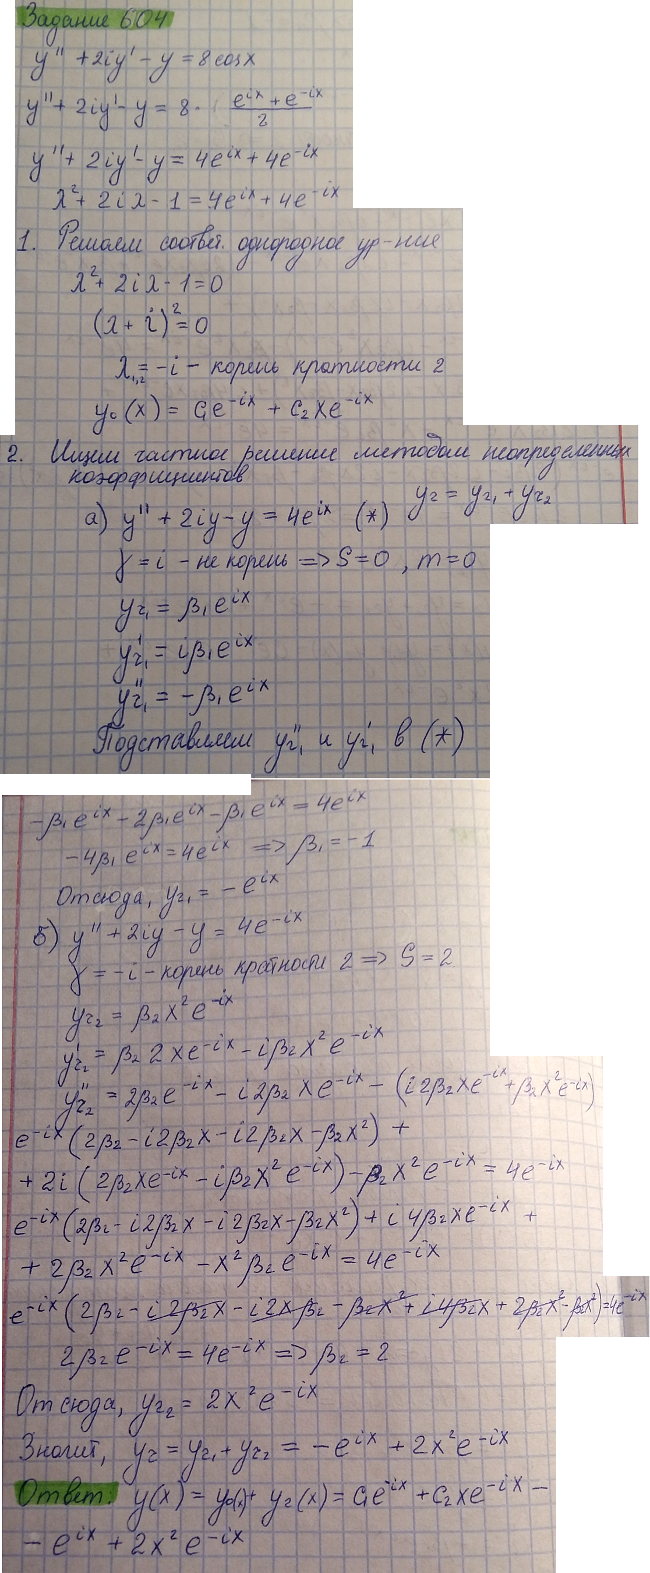 Задание 604
y'' + 2iy' - y = 8cosx
y'' + 2iy' - y = 8 · (e^{ix} + e^{-ix})/2
y'' + 2iy' - y = 4e^{ix} + 4e^{-ix}
λ² + 2iλ - 1 = 4e^{ix} + 4e^{-ix}
1. Решаем соответ. однородное ур-ние
λ² + 2iλ - 1 = 0
(λ + i)² = 0
λ₁,₂ = -i - корень кратности 2
y₀(x) = C₁e^{-ix} + C₂xe^{-ix}
2. Ищем частное решение методом неопределенных
коэффициентов
а) y'' + 2iy - y = 4e^{ix} (*) yг = yг₁ + yг₂
γ = i - не корень => S = 0, m = 0
yг₁ = β₁e^{ix}
y'г₁ = iβ₁e^{ix}
y''г₁ = -β₁e^{ix}
Подставляем y''г₁ и y'г₁ в (*)
-β₁e^{ix} - 2β₁e^{ix} - β₁e^{ix} = 4e^{ix}
-4β₁e^{ix} = 4e^{ix} => β₁ = -1
Отсюда, yг₁ = -e^{ix}
б) y'' + 2iy - y = 4e^{-ix}
γ = -i - корень кратности 2 => S = 2
yг₂ = β₂x²e^{-ix}
y'г₂ = β₂2xe^{-ix} - iβ₂x²e^{-ix}
y''г₂ = 2β₂e^{-ix} - i2β₂xe^{-ix} - (i2β₂xe^{-ix} + β₂x²e^{-ix})
e^{-ix}(2β₂ - i2β₂x - i2β₂x - β₂x²) +
+ 2i(2β₂xe^{-ix} - iβ₂x²e^{-ix}) - β₂x²e^{-ix} = 4e^{-ix}
e^{-ix}(2β₂ - i2β₂x - i2β₂x - β₂x²) + i4β₂xe^{-ix} +
+ 2β₂x²e^{-ix} - x²β₂e^{-ix} = 4e^{-ix}
e^{-ix}(2β₂ - i2β₂x - i2xβ₂ - β₂x² + i4β₂x + 2β₂x² - β₂x²) = 4e^{-ix}
2β₂e^{-ix} = 4e^{-ix} => β₂ = 2
Отсюда, yг₂ = 2x²e^{-ix}
Значит, yг = yг₁ + yг₂ = -e^{ix} + 2x²e^{-ix}
Ответ: y(x) = y₀(x) + yг(x) = C₁e^{-ix} + C₂xe^{-ix} -
- e^{ix} + 2x²e^{-ix}